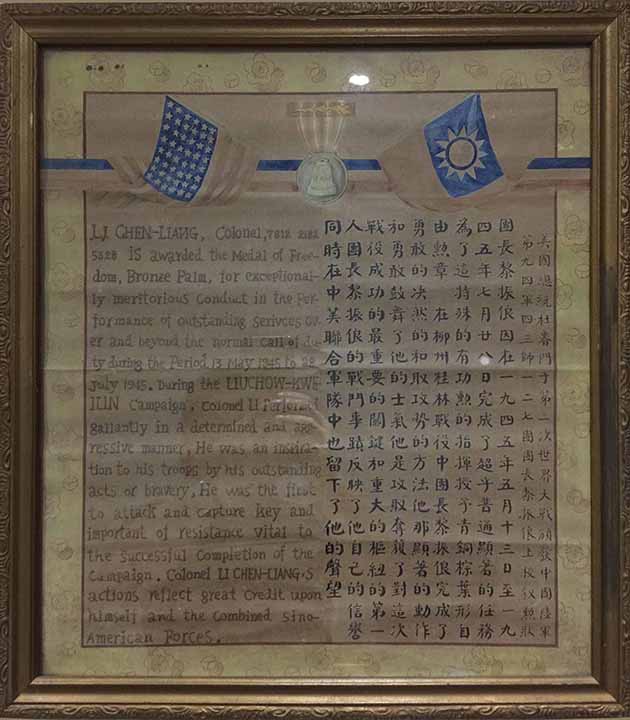 LI CHEN-LIANG, Colonel, 7812 2182
5328 is awarded the Medal of Free-
dom, Bronze Palm, for exceptional-
ly meritorious Conduct in the Per-
formance of outstanding Serivces ov-
er and beyond the normal call of du-
ty during the Period 13 May 1945 to 28
July 1945. During the LIUCHOW-KWE
ILIN Campaign, Colonel LI Performed
gallantly in a determined and agg-
ressive manner, He was an inspira-
tion to his troops by his outstanding
acts or bravery, He was the first
to attack and capture key and
important of resistance vital to
the successful completion of the
Campaign. Colonel LI CHEN-LIANG,S
actions reflect great Credit upon
himself and the Combined Sino-
American Forces.
美國總統杜魯門于第一次世界大戰頒發中國陸軍
第九四軍四三師一二七團團長黎振俍上校勲狀
團長黎振俍因在一九四五年五月十三日至一九
四五年七月廿日完成了超乎普通顯著的任務
為了這特殊的有功勲的指揮授予青銅棕葉形自
由勲章 在柳州桂林戰役中團長黎振俍完成了
勇敢的决然的和敢攻势的方法他那顯著的動作
和勇敢鼓舞了他的士氣他是攻敢奪獲了對這次
戰役成功的最重要的關鍵和重大的樞紐的第一
人團長黎振俍的戰鬥事蹟反映了他自己的信譽
同時在中美聯合軍隊中也留下了他的聲望